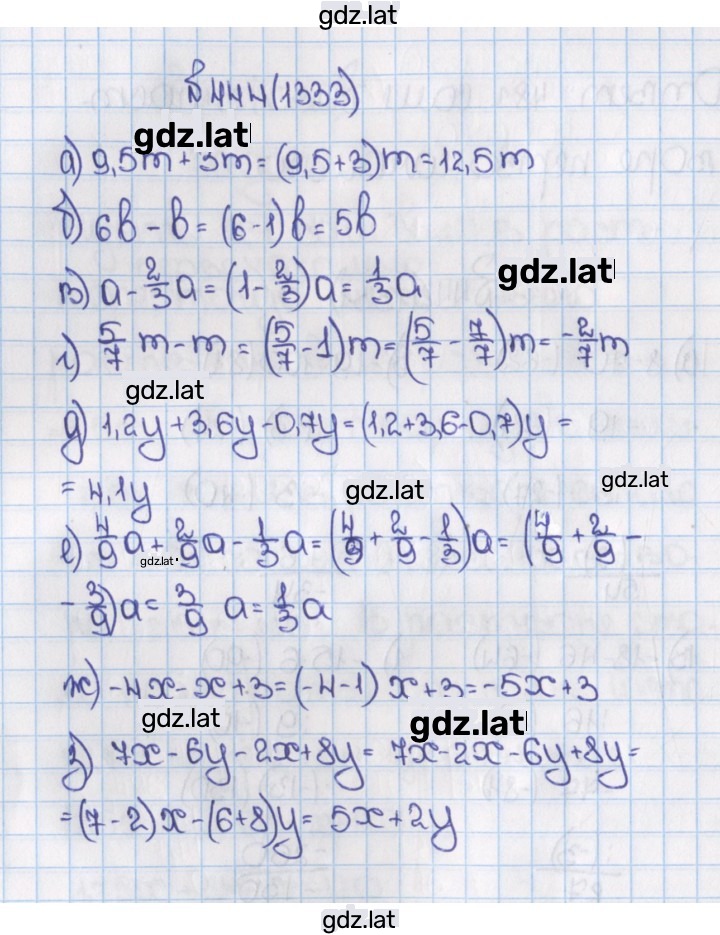 gdz.lat
№ 444 (1333)
gdz.lat
а) 9,5m + 3m = (9,5+3)m = 12,5m
б) 6b - b = (6-1)b = 5b
gdz.lat
в) a - 2/3 a = (1 - 2/3)a = 1/3 a
г) 5/7 m - m = (5/7 - 1)m = (5/7 - 7/7)m = -2/7 m
gdz.lat
д) 1,2y + 3,6y - 0,7y = (1,2+3,6-0,7)y =
gdz.lat
= 4,1y
gdz.lat
е) 4/9 a + 2/9 a - 1/3 a = (4/9 + 2/9 - 1/3)a = (4/9 + 2/9 -
gdz.lat
- 3/9)a = 3/9 a = 1/3 a
ж) -4x - x + 3 = (-4-1)x + 3 = -5x + 3
gdz.lat
gdz.lat
з) 7x - 6y - 2x + 8y = 7x - 2x - 6y + 8y =
= (7-2)x - (6+8)y = 5x + 2y
gdz.lat